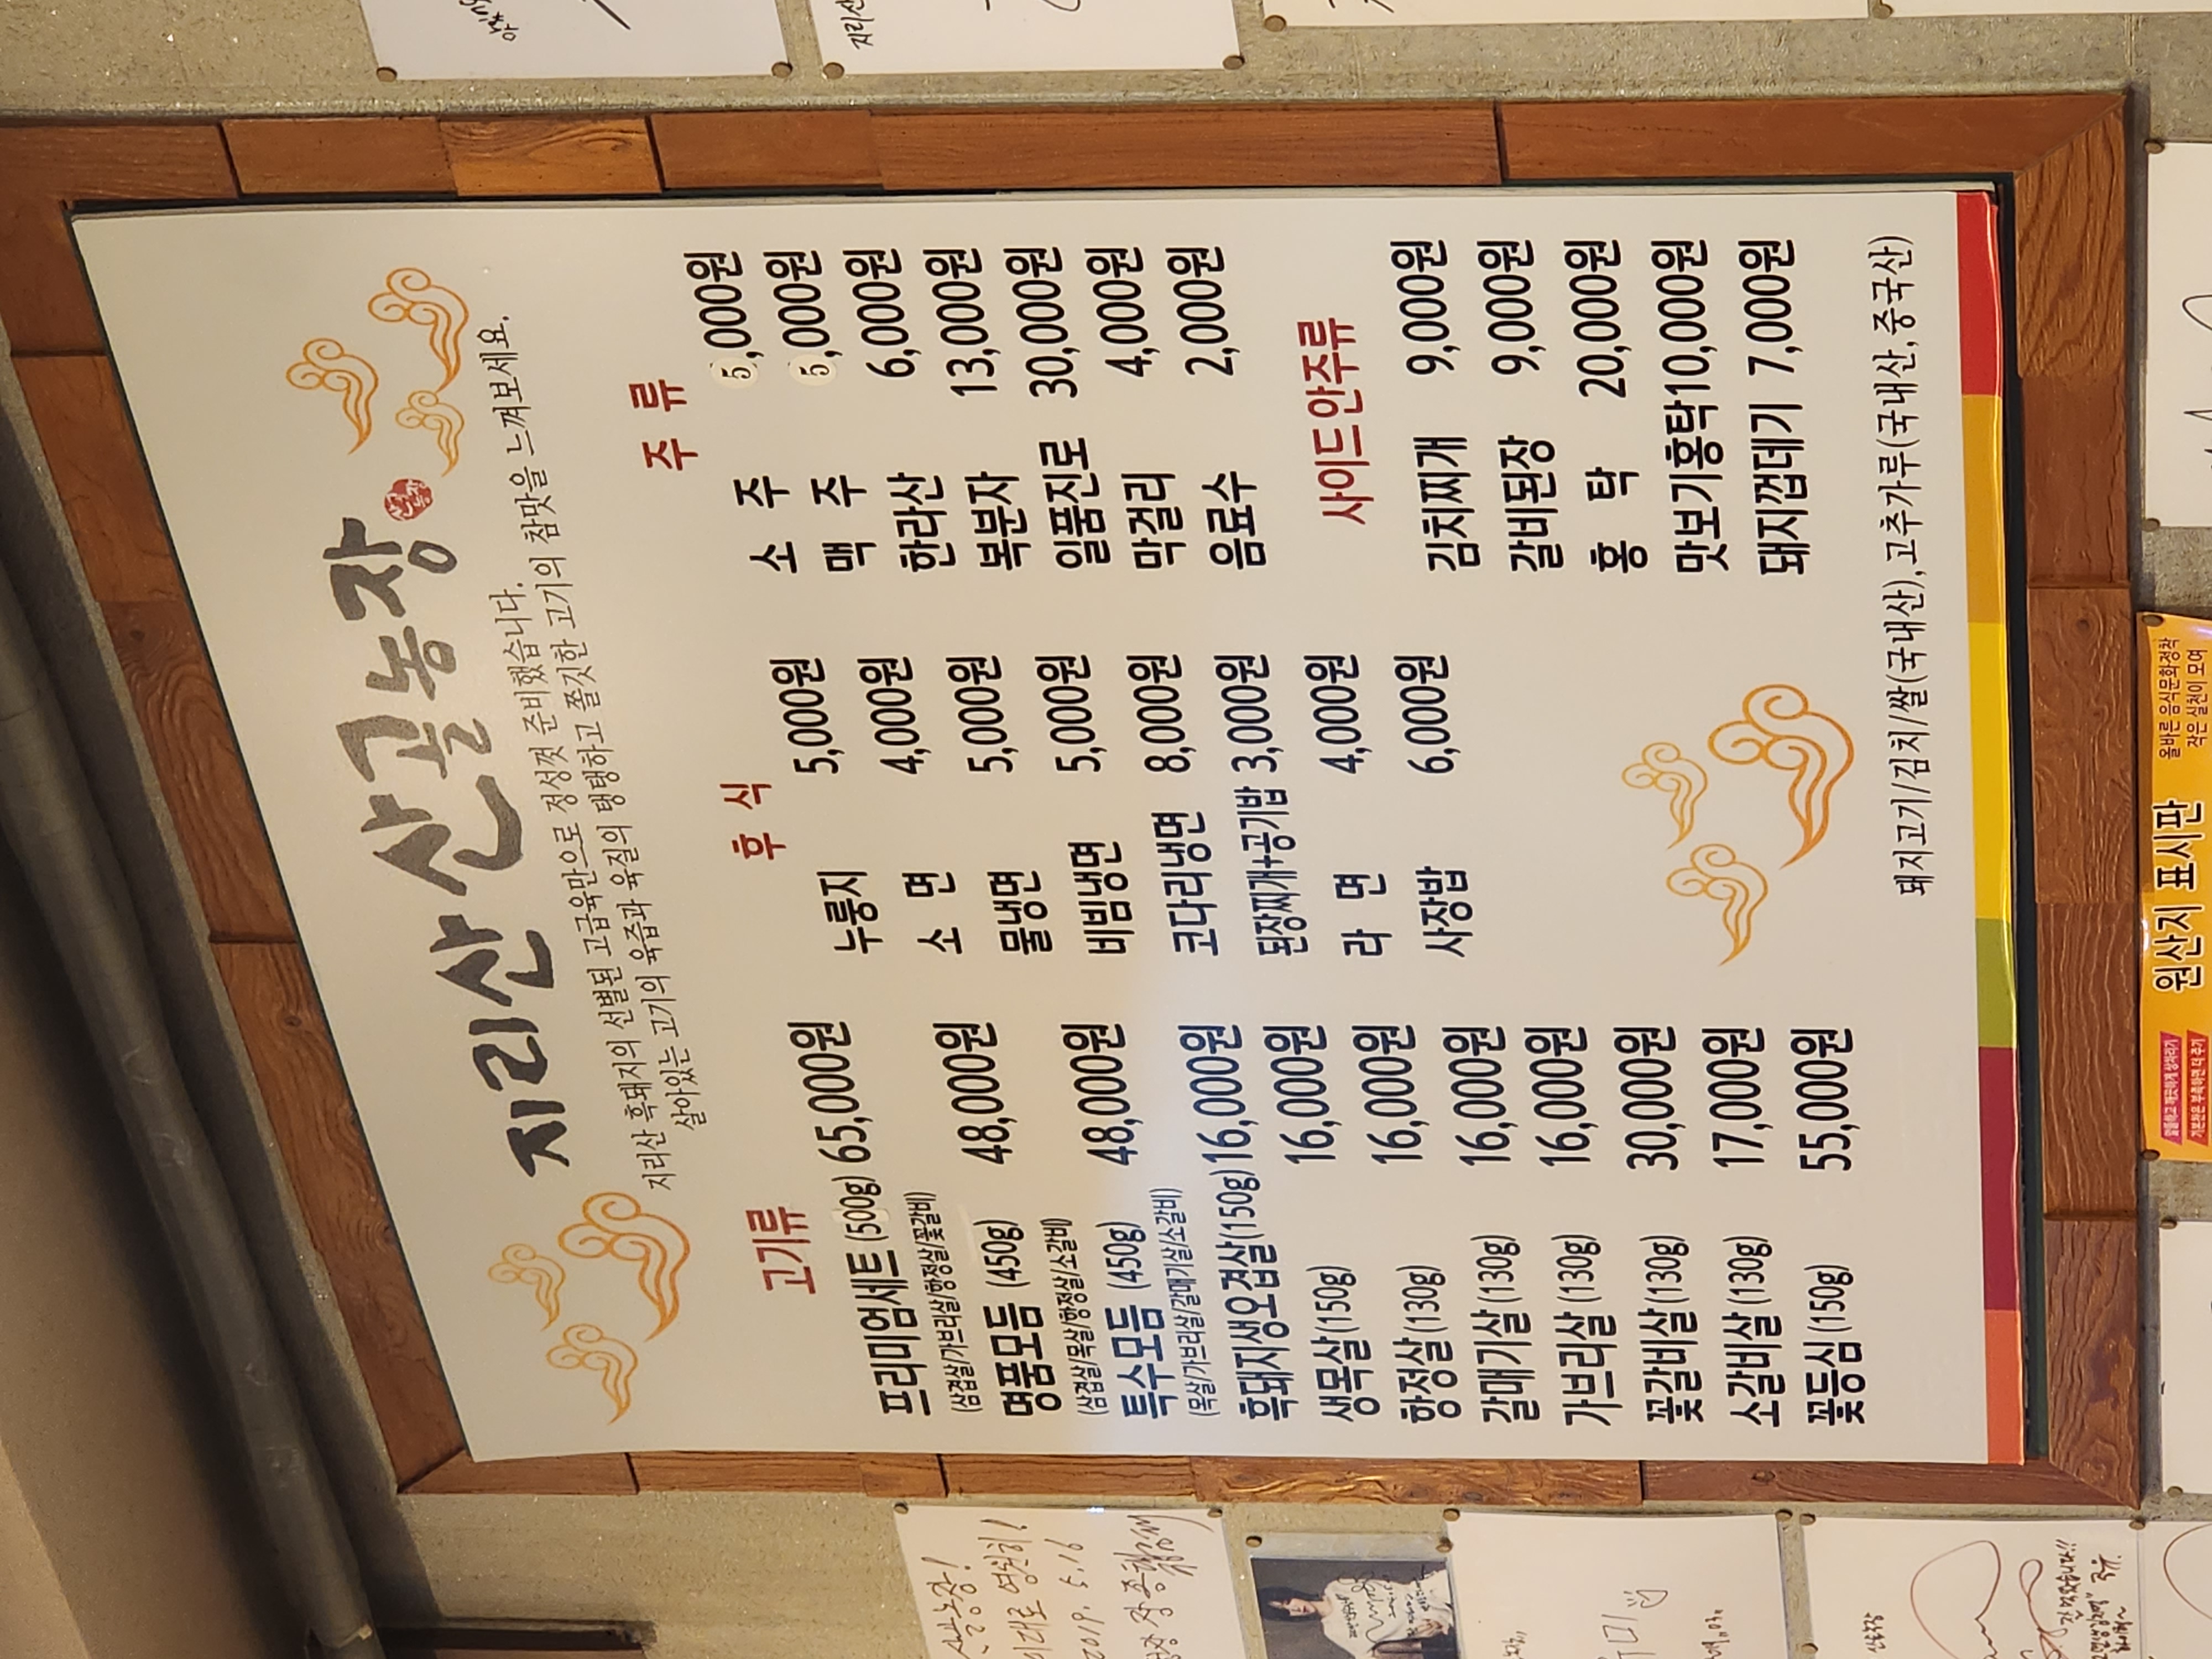 지리산산골농장
지리산 흑돼지의 선별된 고급육만으로 정성껏 준비했습니다.
살아있는 고기의 육즙과 육질의 탱탱하고 쫄깃한 고기의 참맛을 느껴보세요.
고기류
프리미엄세트 (500g) 65,000원
(삼겹살/가브리살/항정살/꽃갈비)
명품모듬 (450g) 48,000원
(삼겹살/목살/항정살/소갈비)
특수모듬 (450g) 48,000원
(목살/가브리살/갈매기살/소갈비)
흑돼지생오겹살(150g) 16,000원
생목살 (150g) 16,000원
항정살 (130g) 16,000원
갈매기살 (130g) 16,000원
가브리살 (130g) 16,000원
꽃갈비살 (130g) 30,000원
소갈비살 (130g) 17,000원
꽃등심 (150g) 55,000원
후 식
누룽지 5,000원
소 면 4,000원
물냉면 5,000원
비빔냉면 5,000원
코다리냉면 8,000원
된장찌개+공기밥 3,000원
라 면 4,000원
사장밥 6,000원
주 류
소 주 5,000원
맥 주 5,000원
한라산 6,000원
복분자 13,000원
일품진로 30,000원
막걸리 4,000원
음료수 2,000원
사이드안주류
김치찌개 9,000원
갈비된장 9,000원
홍 탁 20,000원
맛보기홍탁 10,000원
돼지껍데기 7,000원
돼지고기/김치/쌀(국내산),고추가루(국내산,중국산)
원산지 표시판
올바른 음식문화정착
작은 실천이 모여
산골농장!
이대로 영원히!
2019. 5. 16
지리산